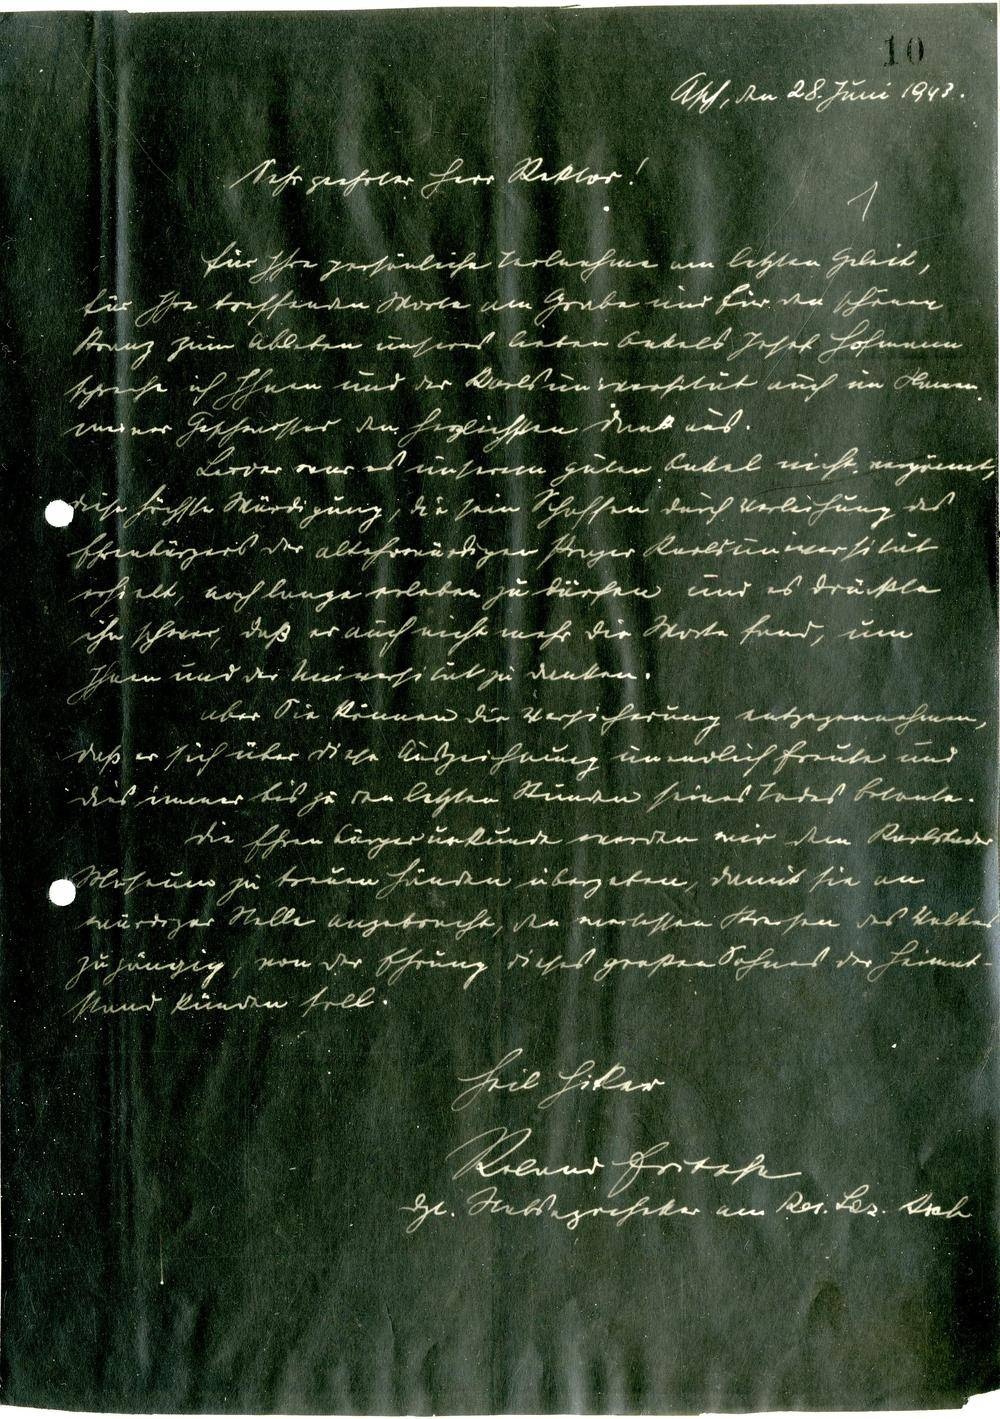 10
Asch, den 28. Juni 1943.
Sehr geehrter Herr Rektor!
Für Ihre persönliche Teilnahme am letzten Geleit,
für Ihre treffenden Worte am Grabe und für den schönen
Kranz zum Ableben unseres lieben Onkels Josef Hofmann
spreche ich Ihnen und der Karlsuniversität auch im Namen
meiner Geschwister den herzlichsten Dank aus.
Leider war es unserem guten Onkel nicht vergönnt,
diese höchste Würdigung, die sein Schaffen durch Verleihung des
Ehrenbürgers der altehrwürdigen Prager Karlsuniversität
erhielt, noch lange erleben zu dürfen und es drückte
ihn schwer, daß er auch nicht mehr die Worte fand, um
Ihnen und der Universität zu danken.
Aber Sie können die Versicherung entgegennehmen,
daß er sich über diese Auszeichnung unendlich freute und
dies immer bis zu den letzten Stunden seines Todes betonte.
Die Ehrenbürgerurkunde werden wir dem Karlsbader
Museum zu treuen Händen übergeben, damit sie an
würdiger Stelle angebracht, den Kreisen des Volkes
zugängig, von der Ehrung dieses großen Sohnes der Heimat
künden soll.
Heil Hitler
Roland Fritsch